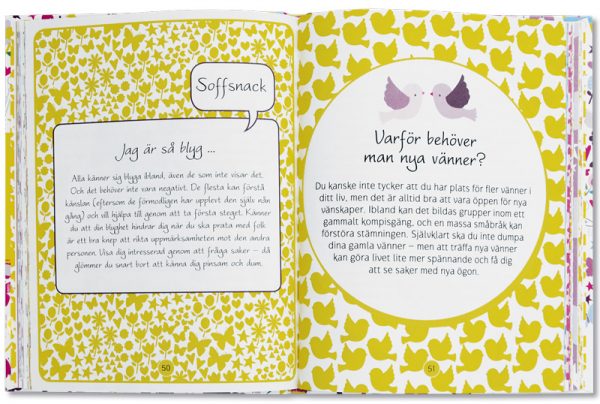 Soffsnack
Jag är så blyg ...
Alla känner sig blyga ibland, även de som inte visar det.
Och det behöver inte vara negativt. De flesta kan förstå
känslan (eftersom de förmodligen har upplevt den själv nån
gång) och vill hjälpa till genom att ta första steget. Känner
du att din blyghet hindrar dig när du ska prata med folk
är ett bra knep att rikta uppmärksamheten mot den andra
personen. Visa dig intresserad genom att fråga saker – då
glömmer du snart bort att känna dig pinsam och dum.
50
Varför behöver
man nya vänner?
Du kanske inte tycker att du har plats för fler vänner i
ditt liv, men det är alltid bra att vara öppen för nya
vänskaper. Ibland kan det bildas grupper inom ett
gammalt kompisgäng, och en massa småbråk kan
förstöra stämningen. Självklart ska du inte dumpa
dina gamla vänner – men att träffa nya vänner
kan göra livet lite mer spännande och få dig
att se saker med nya ögon.
51